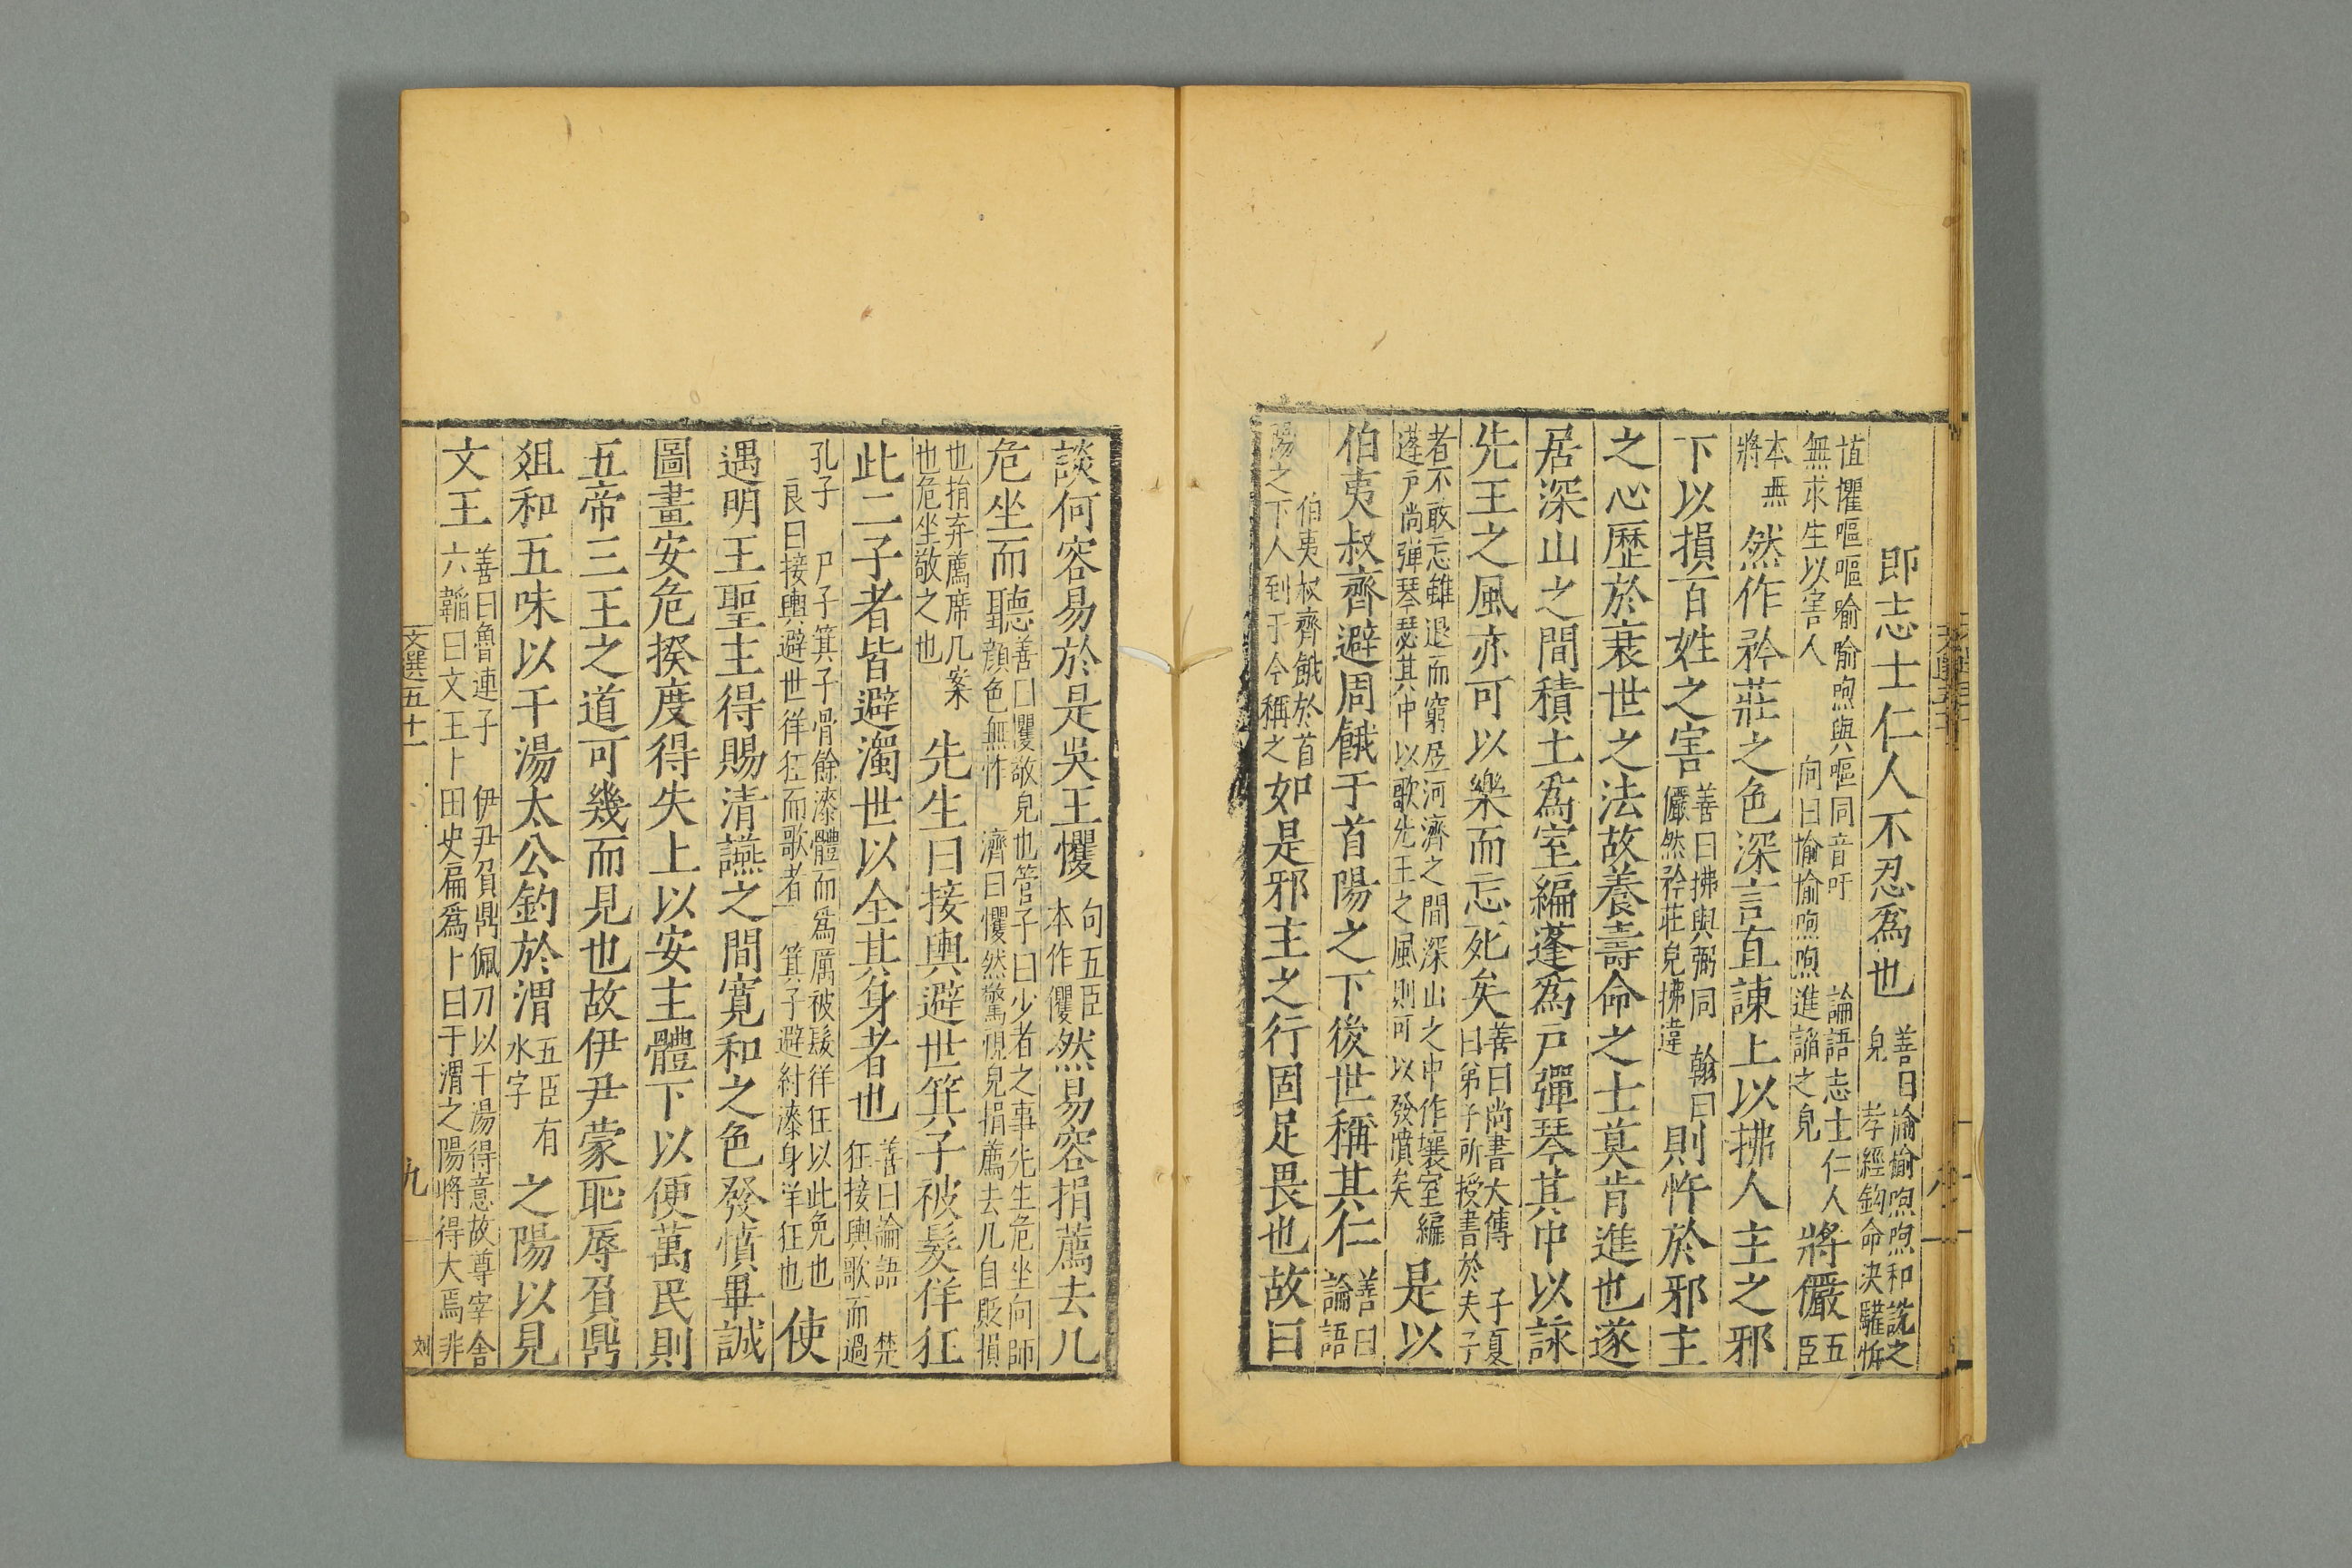 即志士仁人不忍爲也善曰愉愉呴呴和說之皃孝經鉤命決驩忻
愃懼嘔嘔喻喻呴與嘔同音吁論語志士仁人無求生以害人向曰愉愉呴呴進諂之皃將儼五臣
本無將然作矜莊之色深言直諫上以拂人主之邪
下以損百姓之害善曰拂與弼同翰曰儼然矜莊皃拂違則忤於邪主
之心歷於衰世之法故養壽命之士莫肯進也遂
居深山之間積土爲室編蓬爲戶彈琴其中以詠
先王之風亦可以樂而忘死矣善曰尚書大傳子夏曰弟子所授書於夫子
者不敢忘雖退而窮居河濟之間深山之中作壤室編蓬戶尚彈琴瑟其中以歌先王之風則可以發憤矣是以
伯夷叔齊避周餓于首陽之下後世稱其仁善曰論語
伯夷叔齊餓於首陽之下人到于今稱之如是邪主之行固足畏也故曰
談何容易於是吳王懼句五臣本作懼然易容捐薦去几
危坐而聽善曰懼敬皃也管子曰少者之事先生危坐向師顏色無怍濟曰懼然驚視皃捐薦去几自貶損
也捐弃薦席几案也危坐敬之也先生曰接輿避世箕子被髮佯狂
此二子者皆避濁世以全其身者也善曰論語楚狂接輿歌而過
孔子尸子箕子骨餘漆體而爲厲被髮佯狂以此免也良曰接輿避世佯狂而歌者箕子避紂漆身佯狂也使
遇明王聖主得賜清讌之間寬和之色發憤畢誠
圖畫安危揆度得失上以安主體下以便萬民則
五帝三王之道可幾而見也故伊尹蒙恥辱負鼎
俎和五味以干湯太公釣於渭五臣有水字之陽以見
文王善曰魯連子伊尹負鼎佩刀以干湯得意故尊宰舍六韜曰文王卜田史扁爲卜曰于渭之陽將得大焉非
文選五十一
九
刘